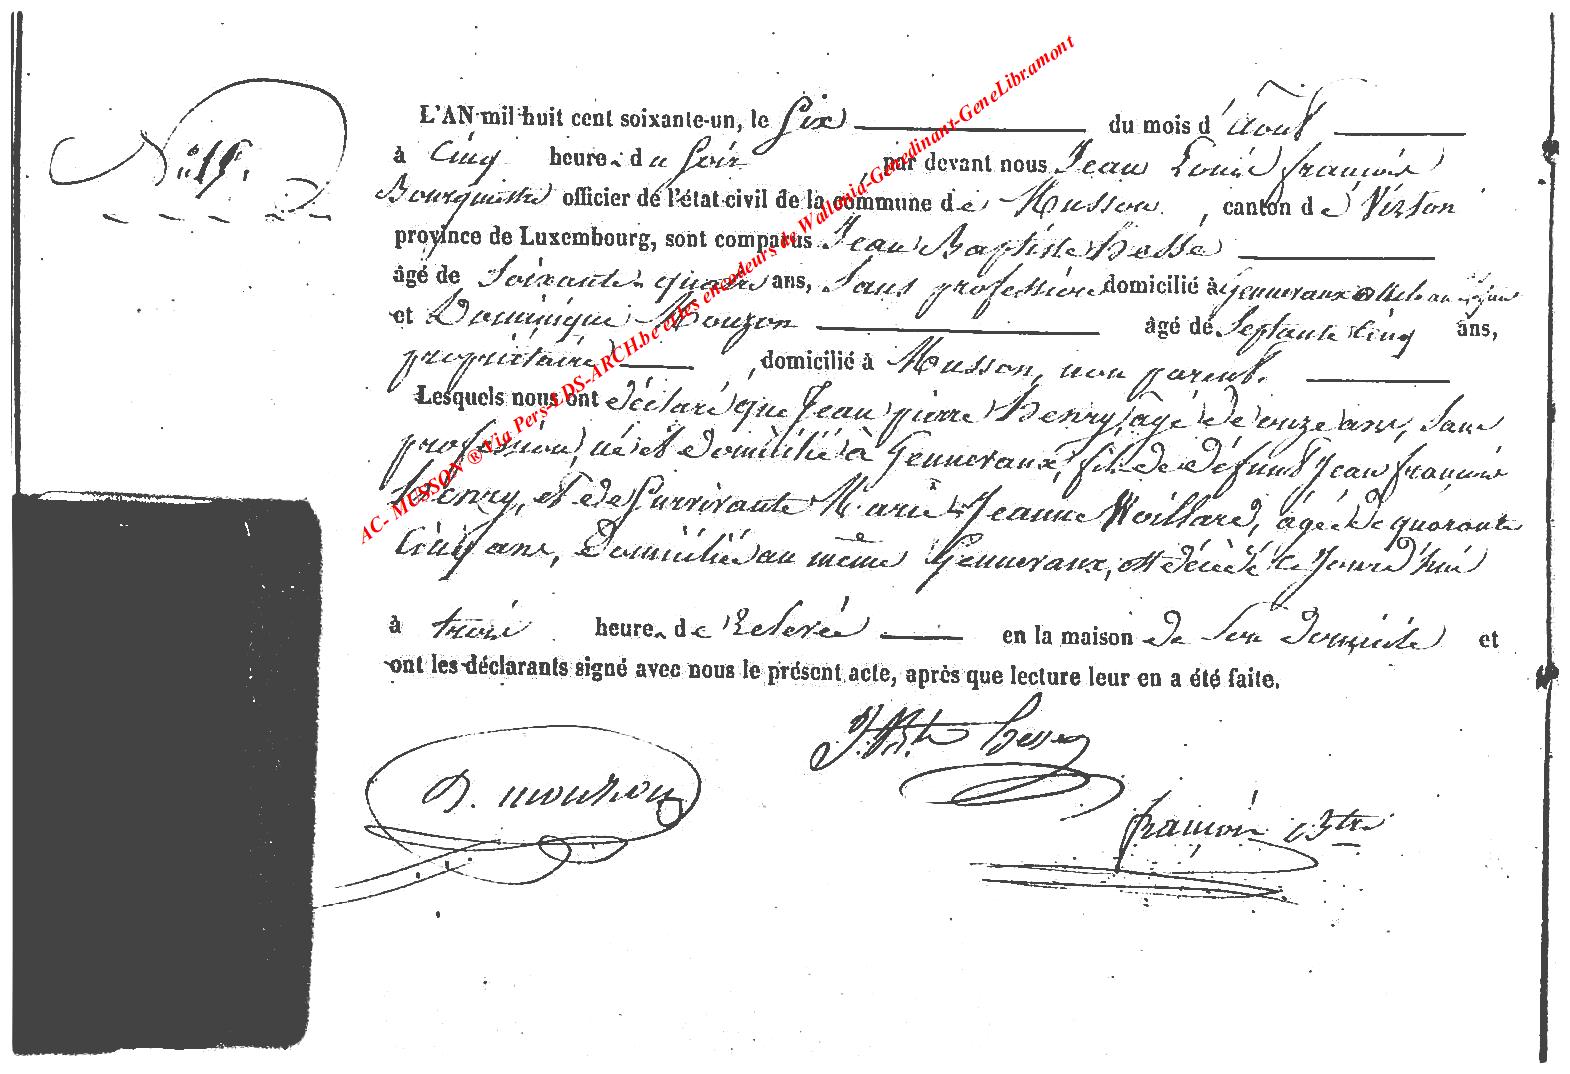 N° 15.
L'AN mil huit cent soixante-un, le Six du mois d'Août
à Cinq heures du Soir par devant nous Jean Louis françois
Bourguitte officier de l'état civil de la commune de Musson, canton de Virton
province de Luxembourg, sont comparus Jean Baptiste hesse
âgé de Soixante quatre ans, Sans profession domicilié à Gennevaux
et Dominique Mouzon âgé de Septante Cinq ans,
propriétaire, domicilié à Musson, non parent.
Lesquels nous ont déclaré que Jean pierre henry, âgé de onze ans, Sans
profession, né et domicilié à Gennevaux, fils de défunt Jean françois
henry, et de Survivante Marie Jeanne Woillard, âgée de quarante
Cinq ans, domiciliée au même Gennevaux, est décédé ce Jourd'hui
à trois heures de relevée en la maison de Son domicile et
ont les déclarants signé avec nous le présent acte, après que lecture leur en a été faite.
J. Bte hesse
D. mouzon
françois
AC- MUSSON ® Via Pers-LDS-ARCH.be et les encodeurs de Wallonia-Genedinant-GeneLibramont